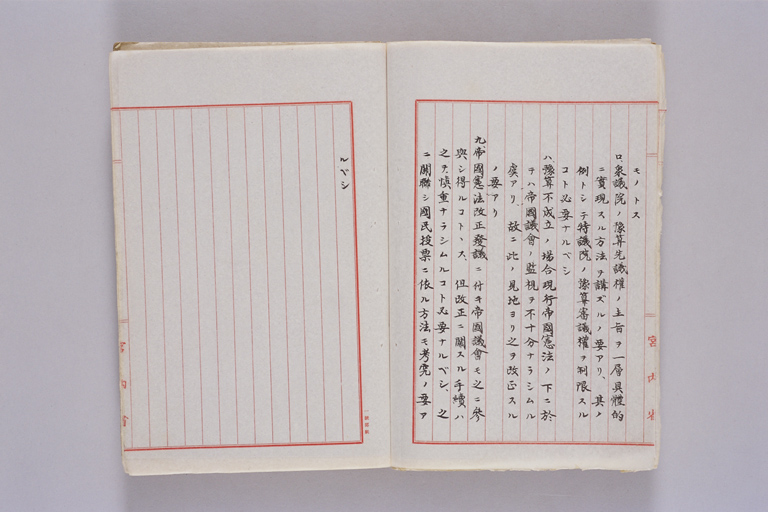 モノトス
ロ衆議院ノ豫算先議權ノ主旨ヲ一層具體的
ニ實現スル方法ヲ講ズルノ要アリ、其ノ
例トシテ特議院ノ豫算審議權ヲ制限スル
コト必要ナルベシ
ハ豫算不成立ノ場合現行帝國憲法ノ下ニ於
テハ帝國議會ノ監視ヲ不十分ナラシムル
虞アリ、故ニ此ノ見地ヨリ之ヲ改正スル
ノ要アリ
九帝國憲法改正發議ニ付キ帝國議會モ之ニ參
與シ得ルコトヽス、但改正ニ關スル手續ハ
之ヲ愼重ナラシムルコト必要ナルベシ、之
ニ關聯シ國民投票ニ依ル方法モ考究ノ要ア
宮内省
ルベシ
宮内省